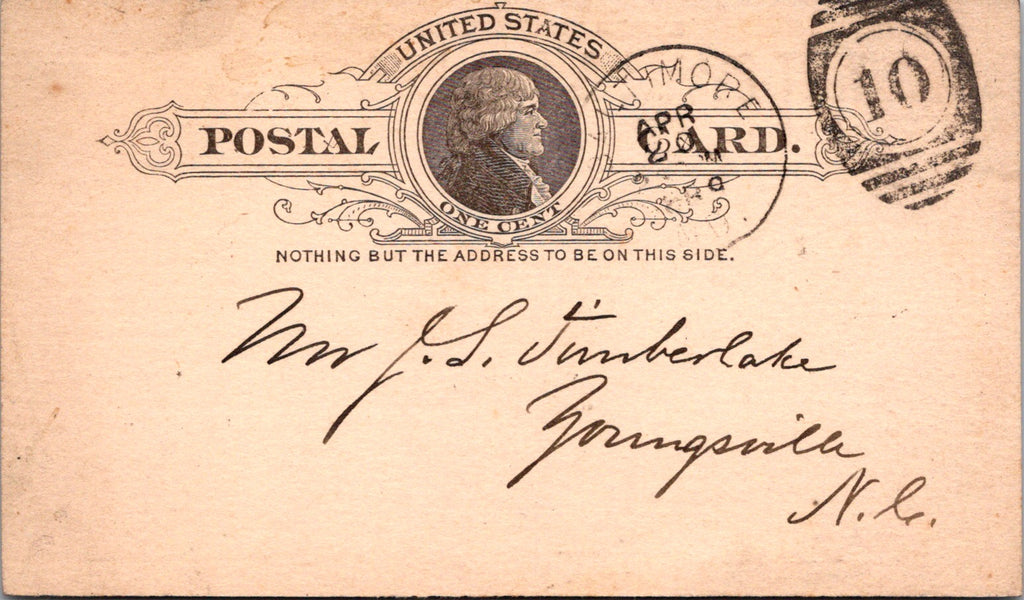 UNITED STATES
POSTAL CARD.
ONE CENT
NOTHING BUT THE ADDRESS TO BE ON THIS SIDE.
TIMORE
APR
10
Mr J. S. Timberlake
Youngsville
N. C.